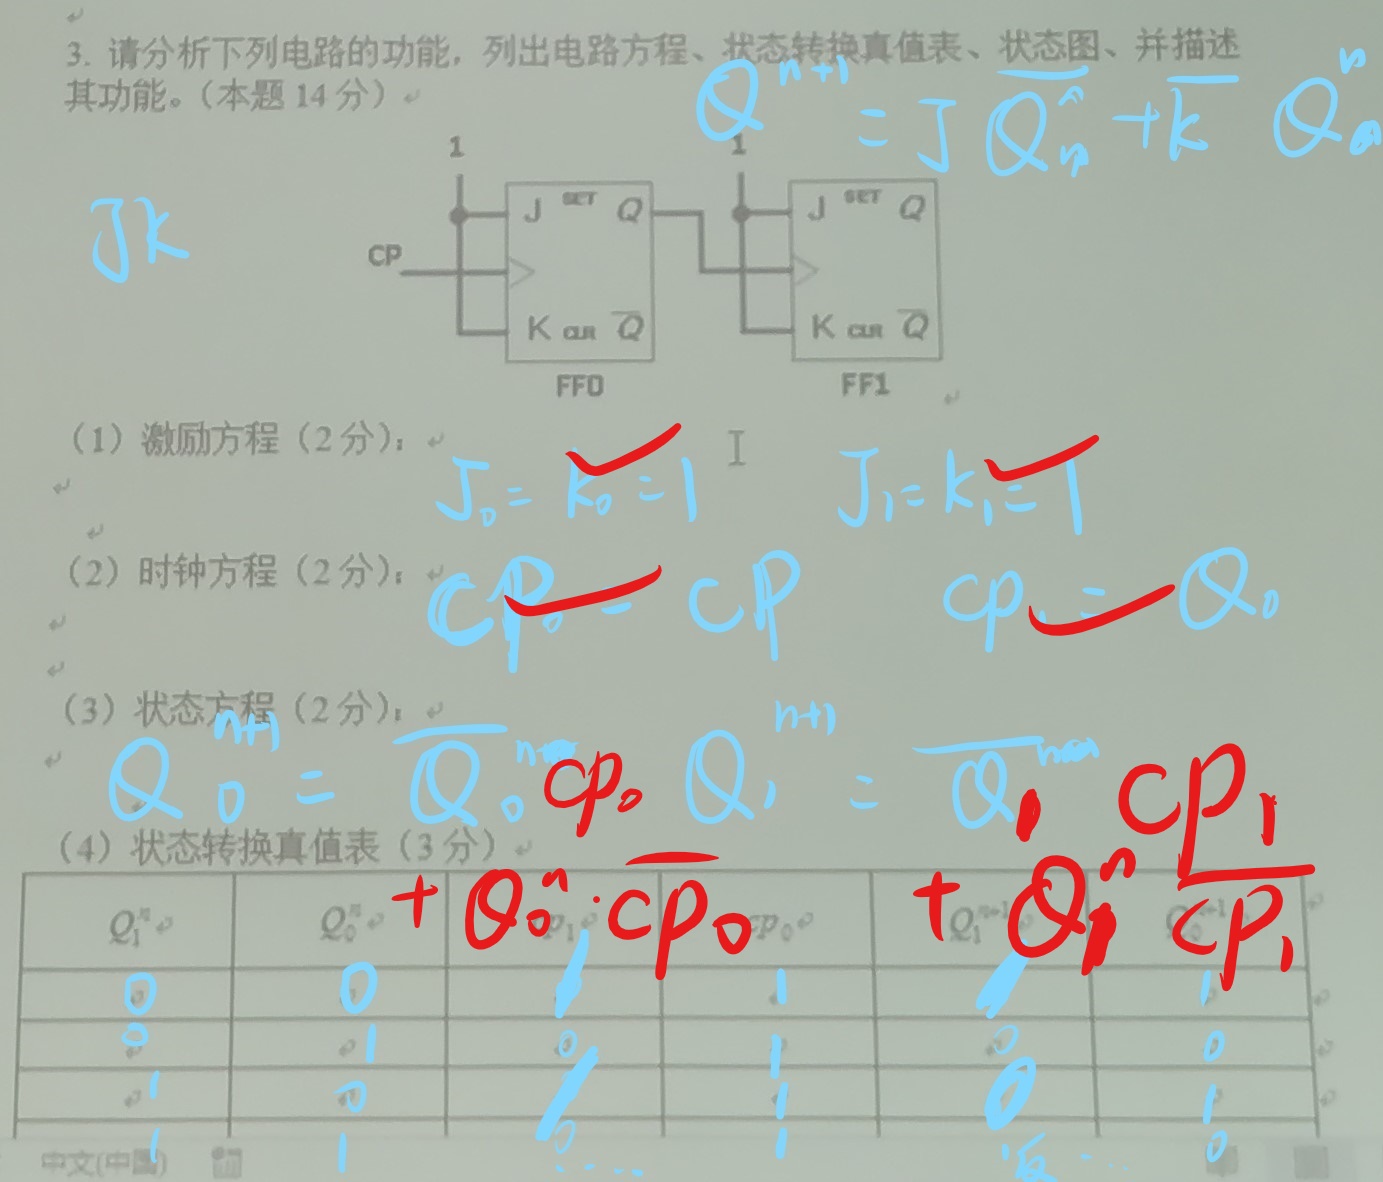 3. 请分析下列电路的功能，列出电路方程、状态转换真值表、状态图、并描述
其功能。（本题 14 分）
Q^{n+1} = J \overline{Q^n_n} + \overline{K} Q^n
JK
1 1
J SET Q J SET Q
CP
K CLR \overline{Q} K CLR \overline{Q}
FF0 FF1
（1）激励方程（2 分）：
J_0 = K_0 = 1 J_1 = K_1 = 1
（2）时钟方程（2 分）：
CP_0 = CP CP_1 = Q_0
（3）状态方程（2 分）：
Q_0^{n+1} = \overline{Q_0}^n CP_0 Q_1^{n+1} = \overline{Q_1}^n CP_1
（4）状态转换真值表（3 分）
+ Q_0^n · \overline{CP_0} + Q_1^n \overline{CP_1}
Q_1^n Q_0^n cp_1 cp_0 Q_1^{n+1} Q_0^{n+1}
0 0 1 1 1 1
0 1 0 1 0 0
1 0 1 1 0 1
1 1 0 1 0
中文(中国)